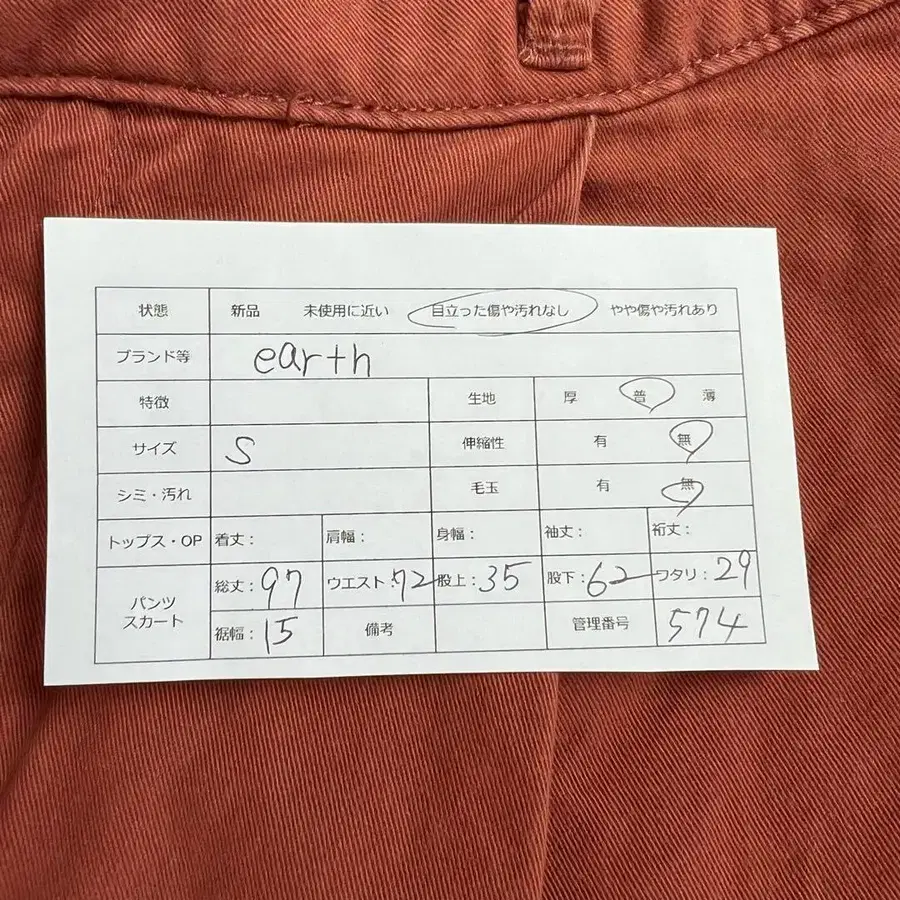 状態 新品 未使用に近い 目立った傷や汚れなし やや傷や汚れあり
ブランド等 earth
特徴 生地 厚 普 薄
サイズ S 伸縮性 有 無
シミ・汚れ 毛玉 有 無
トップス・OP 着丈: 肩幅: 身幅: 袖丈: 裄丈:
パンツ スカート 総丈:97 ウエスト:72 股上:35 股下:62 ワタリ:29
裾幅:15 備考 管理番号 574